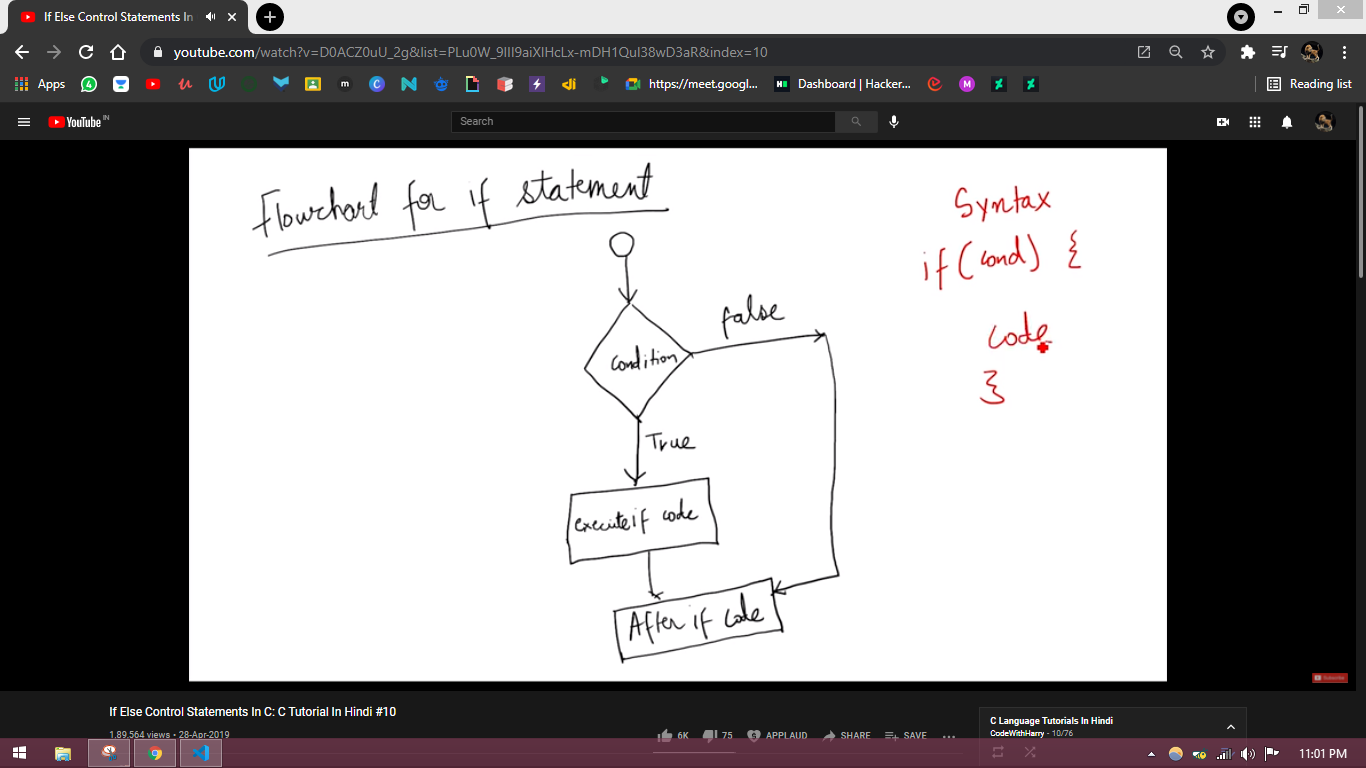 If Else Control Statements In
youtube.com/watch?v=D0ACZ0uU_2g&list=PLu0W_9lII9aiXlHcLx-mDH1Qul38wD3aR&index=10
Apps
https://meet.googl...
Dashboard | Hacker...
Reading list
YouTube IN
Search
Flowchart for if statement
condition
false
True
execute if code
After if code
Syntax
if (cond) {
code
}
Subscribe
If Else Control Statements In C: C Tutorial In Hindi #10
1,89,564 views • 28-Apr-2019
6K
75
APPLAUD
SHARE
SAVE
C Language Tutorials In Hindi
CodeWithHarry - 10/76
11:01 PM